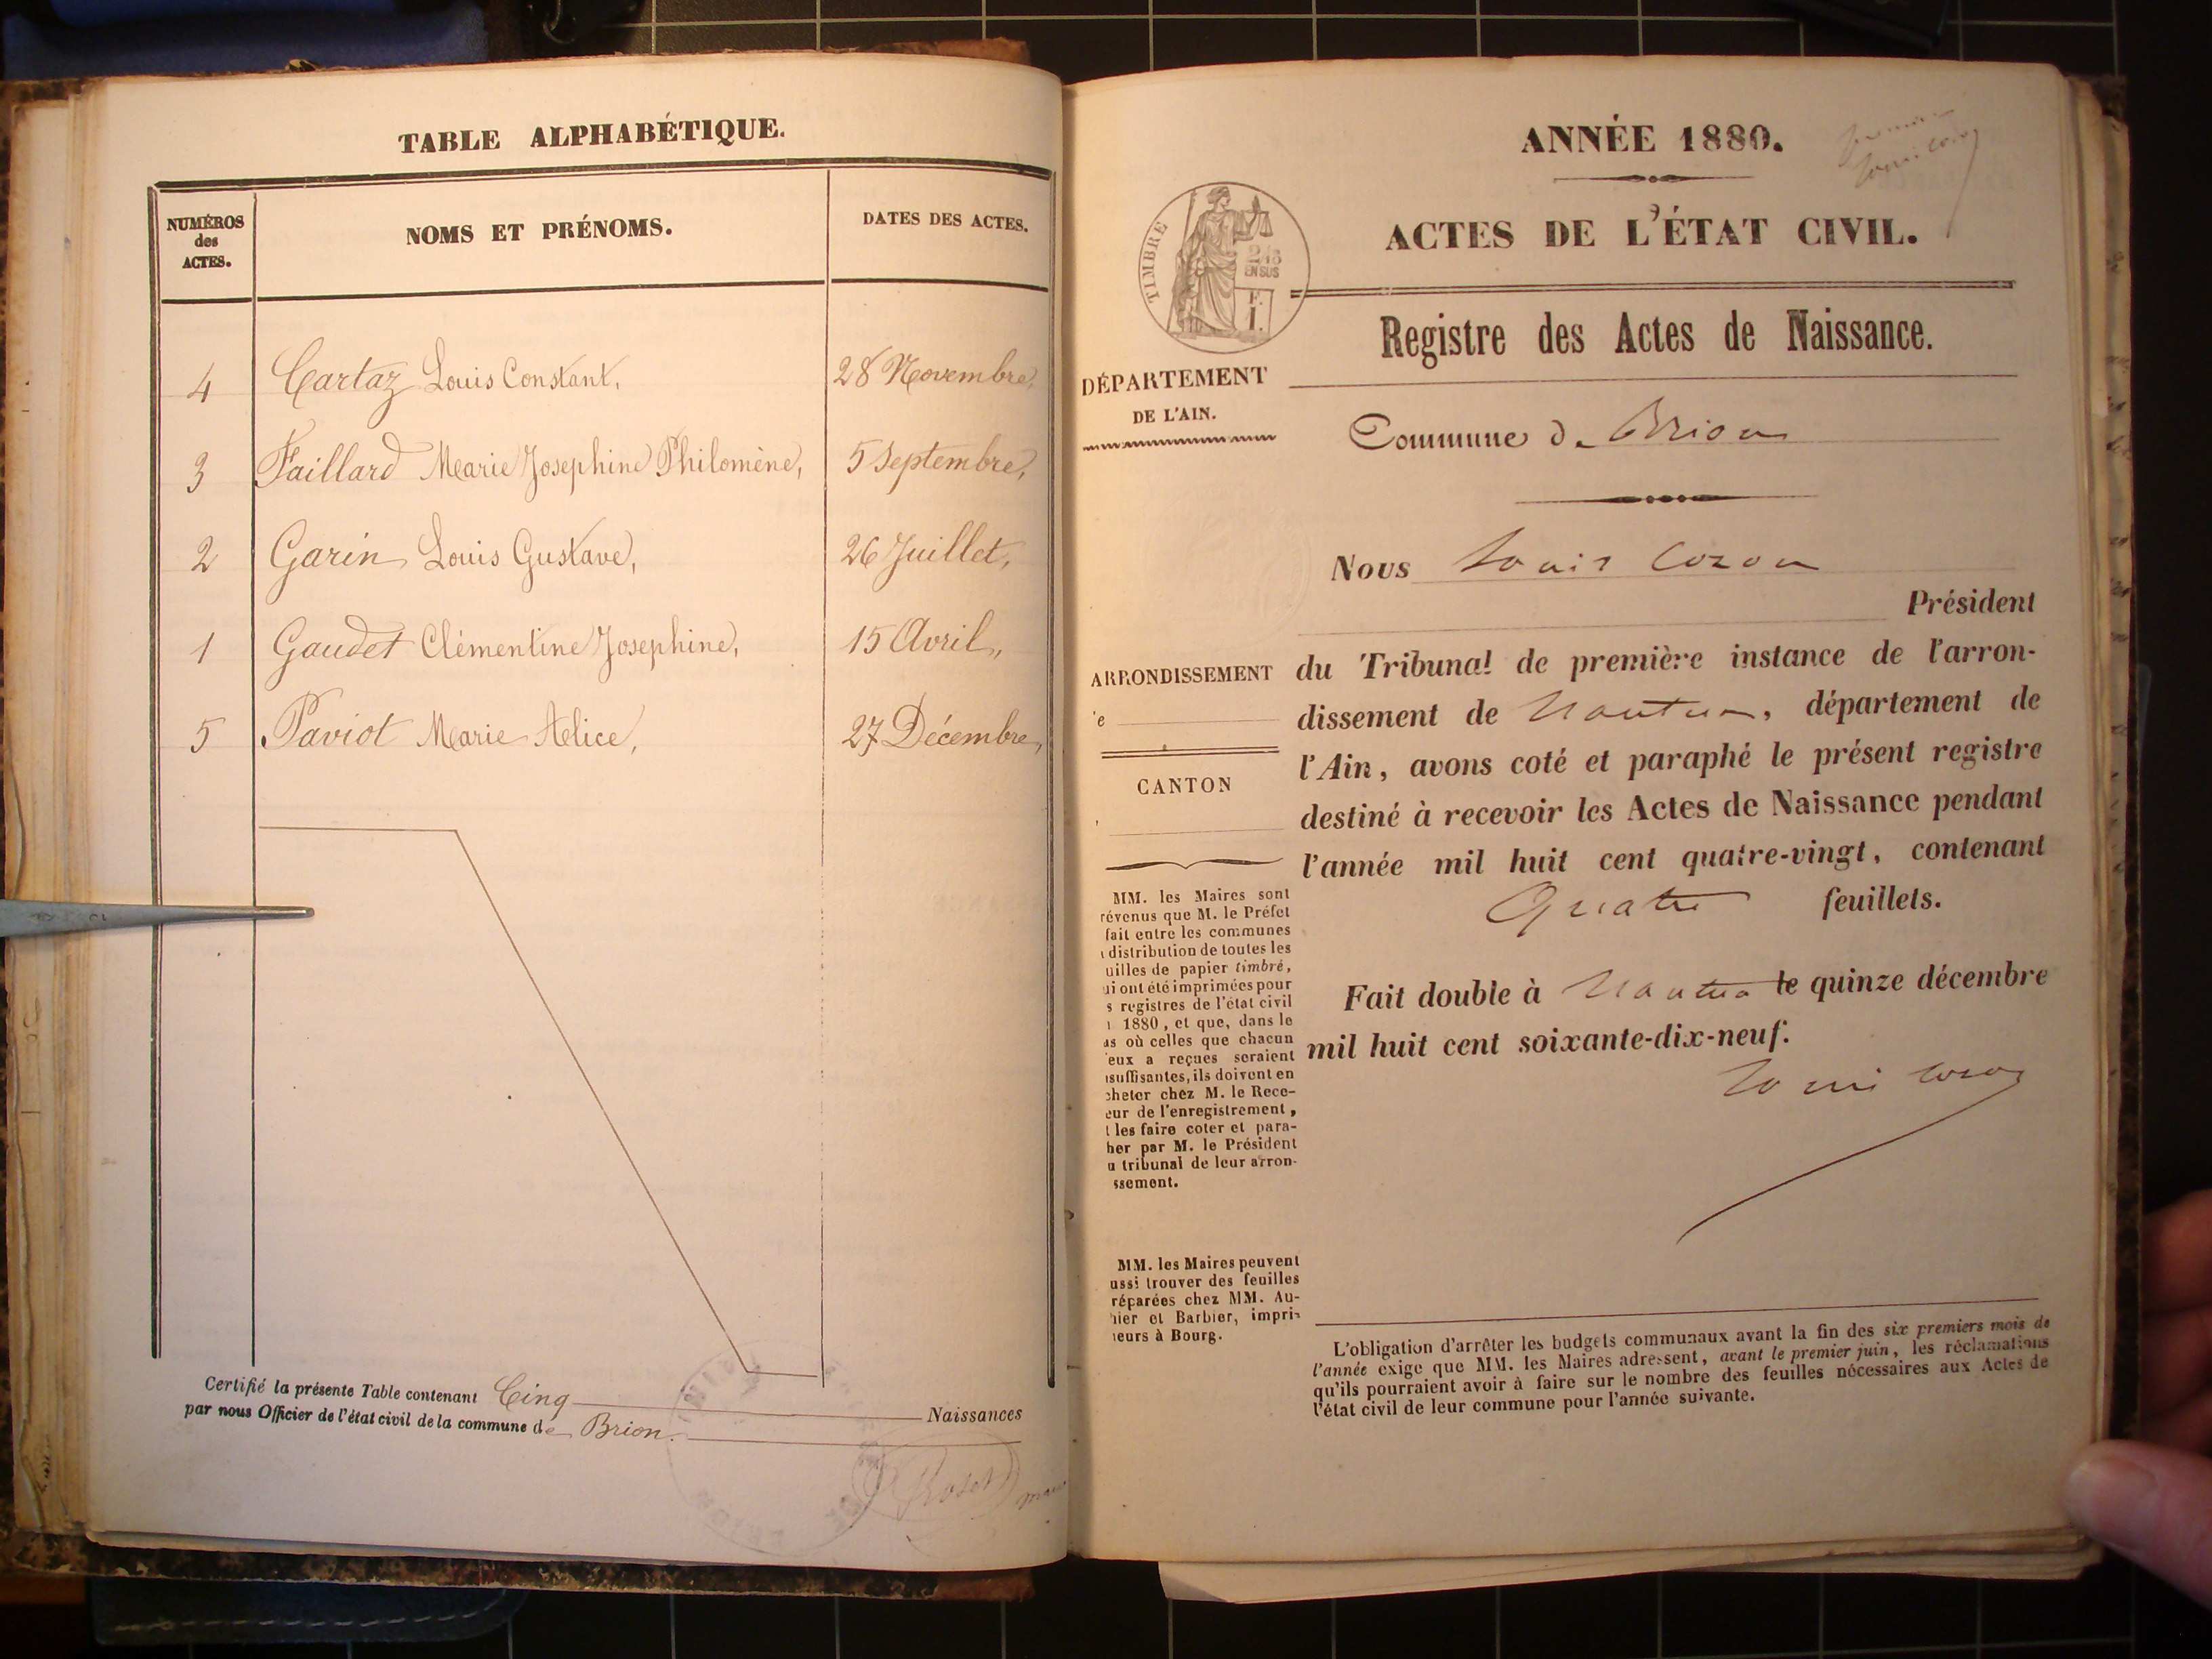 TABLE ALPHABÉTIQUE.
NUMÉROS
des
ACTES.
NOMS ET PRÉNOMS.
DATES DES ACTES.
4 Cartaz Louis Constant, 28 Novembre,
3 Faillard Marie Josephine Philomène, 5 Septembre,
2 Garin Louis Gustave, 26 Juillet,
1 Gaudet Clémentine Josephine, 15 Avril,
5 Paviot Marie Alice, 27 Décembre,
Certifié la présente Table contenant Cinq Naissances
par nous Officier de l'état civil de la commune de Brion.
ANNÉE 1880.
ACTES DE L'ÉTAT CIVIL.
TIMBRE
EN SUS
Registre des Actes de Naissance.
DÉPARTEMENT
DE L'AIN.
Commune de Brion
Nous Louis Cozon
Président
ARRONDISSEMENT
CANTON
du Tribunal de première instance de l'arron-
dissement de Nantua, département de
l'Ain, avons coté et paraphé le présent registre
destiné à recevoir les Actes de Naissance pendant
l'année mil huit cent quatre-vingt, contenant
Quatre feuillets.
Fait double à Nantua le quinze décembre
mil huit cent soixante-dix-neuf.
Louis Cozon
MM. les Maires sont
révenus que M. le Préfet
fait entre les communes
distribution de toutes les
uilles de papier timbré,
ui ont été imprimées pour
s registres de l'état civil
1880, et que, dans le
as où celles que chacun
'eux a reçues seraient
suffisantes, ils doivent en
cheter chez M. le Rece-
eur de l'enregistrement,
t les faire coter et para-
her par M. le Président
u tribunal de leur arron-
ssement.
MM. les Maires peuvent
ussi trouver des feuilles
réparées chez MM. Au-
hier et Barbier, impri-
eurs à Bourg.
L'obligation d'arrêter les budgets communaux avant la fin des six premiers mois de
l'année exige que MM. les Maires adressent, avant le premier juin, les réclamations
qu'ils pourraient avoir à faire sur le nombre des feuilles nécessaires aux Actes de
l'état civil de leur commune pour l'année suivante.